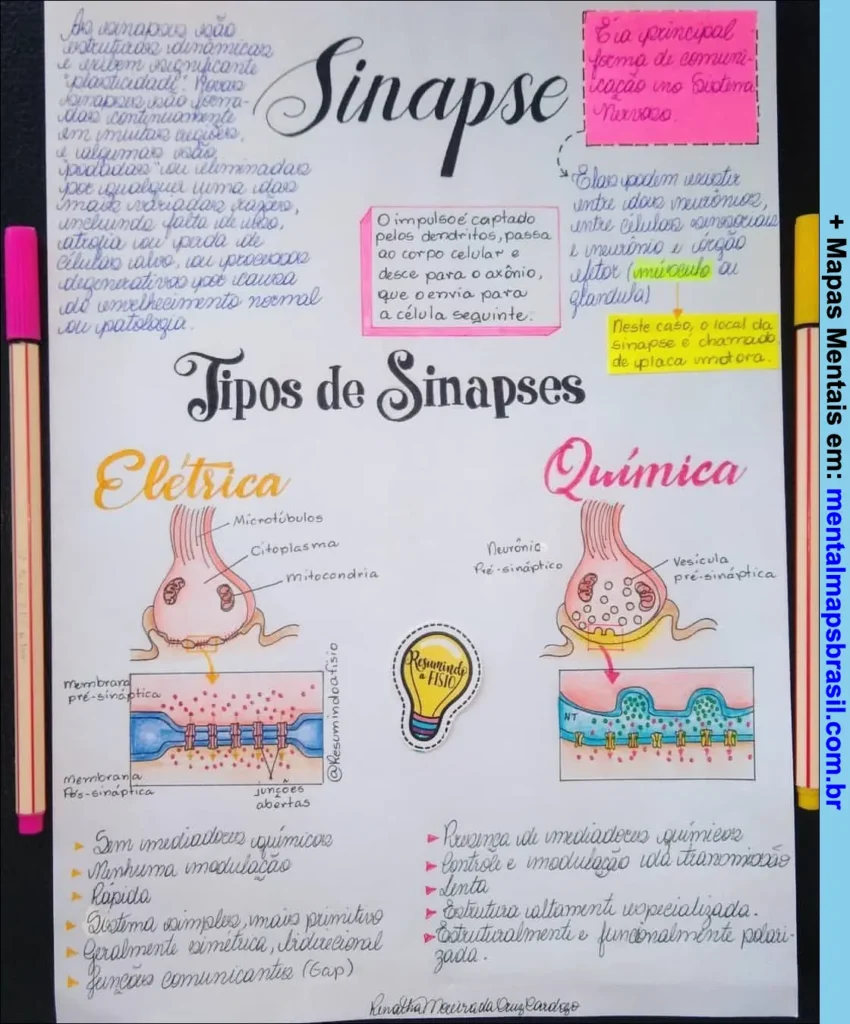 Sinapse
As sinapses são
estruturas dinâmicas
e exibem significante
"plasticidade". Novas
sinapses são forma-
das continuamente
em muitas regiões,
e algumas são
"podadas" ou eliminadas
por qualquer uma das
mais variadas razões,
incluindo falta de uso,
atrofia ou perda de
células alvo, ou processos
degenerativos por causa
do envelhecimento normal
ou patologia.
É a principal
forma de comuni-
cação no Sistema
Nervoso.
Elas podem existir
entre dois neurônios,
entre células sensoriais
e neurônio e órgão
efetor (músculo ou
glandula)
Neste caso, o local da
sinapse é chamado
de placa motora.
O impulso é captado
pelos dendritos, passa
ao corpo celular e
desce para o axônio,
que o envia para
a célula seguinte.
Tipos de Sinapses
Elétrica
Microtúbulos
Citoplasma
Mitocondria
Membrana
pré-sináptica
Membrana
Pós-sináptica
junções
abertas
@Resumindoafisio
Sem mediadores químicos
Nenhuma modulação
Rápida
Sistema simples, mais primitivo
Geralmente simétrica, bidirecional
Junções comunicantes (Gap)
Resumindo
a FISIO
Química
Neurônio
Pré-sináptico
Vesícula
pré-sináptica
NT
Presença de mediadores químicos
Controle e modulação da transmissão
Lenta
Estrutura altamente especializada.
Estruturalmente e funcionalmente polari-
zada.
Renatha Moreira da Cruz Cardozo
+ Mapas Mentais em: mentalmapsbrasil.com.br